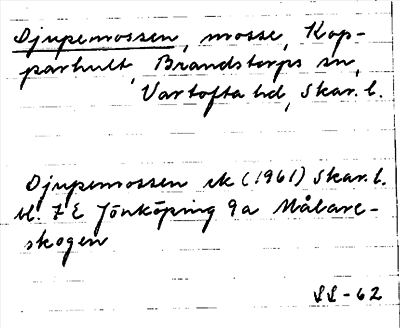 Djupemossen, mosse, Kop-
parhult, Brandstorps sn,
Vartofta hd, Skar. l.
Djupemossen ek (1961) Skar. l.
bl. 7 E Jönköping 9a Målare-
skogen
SL-62